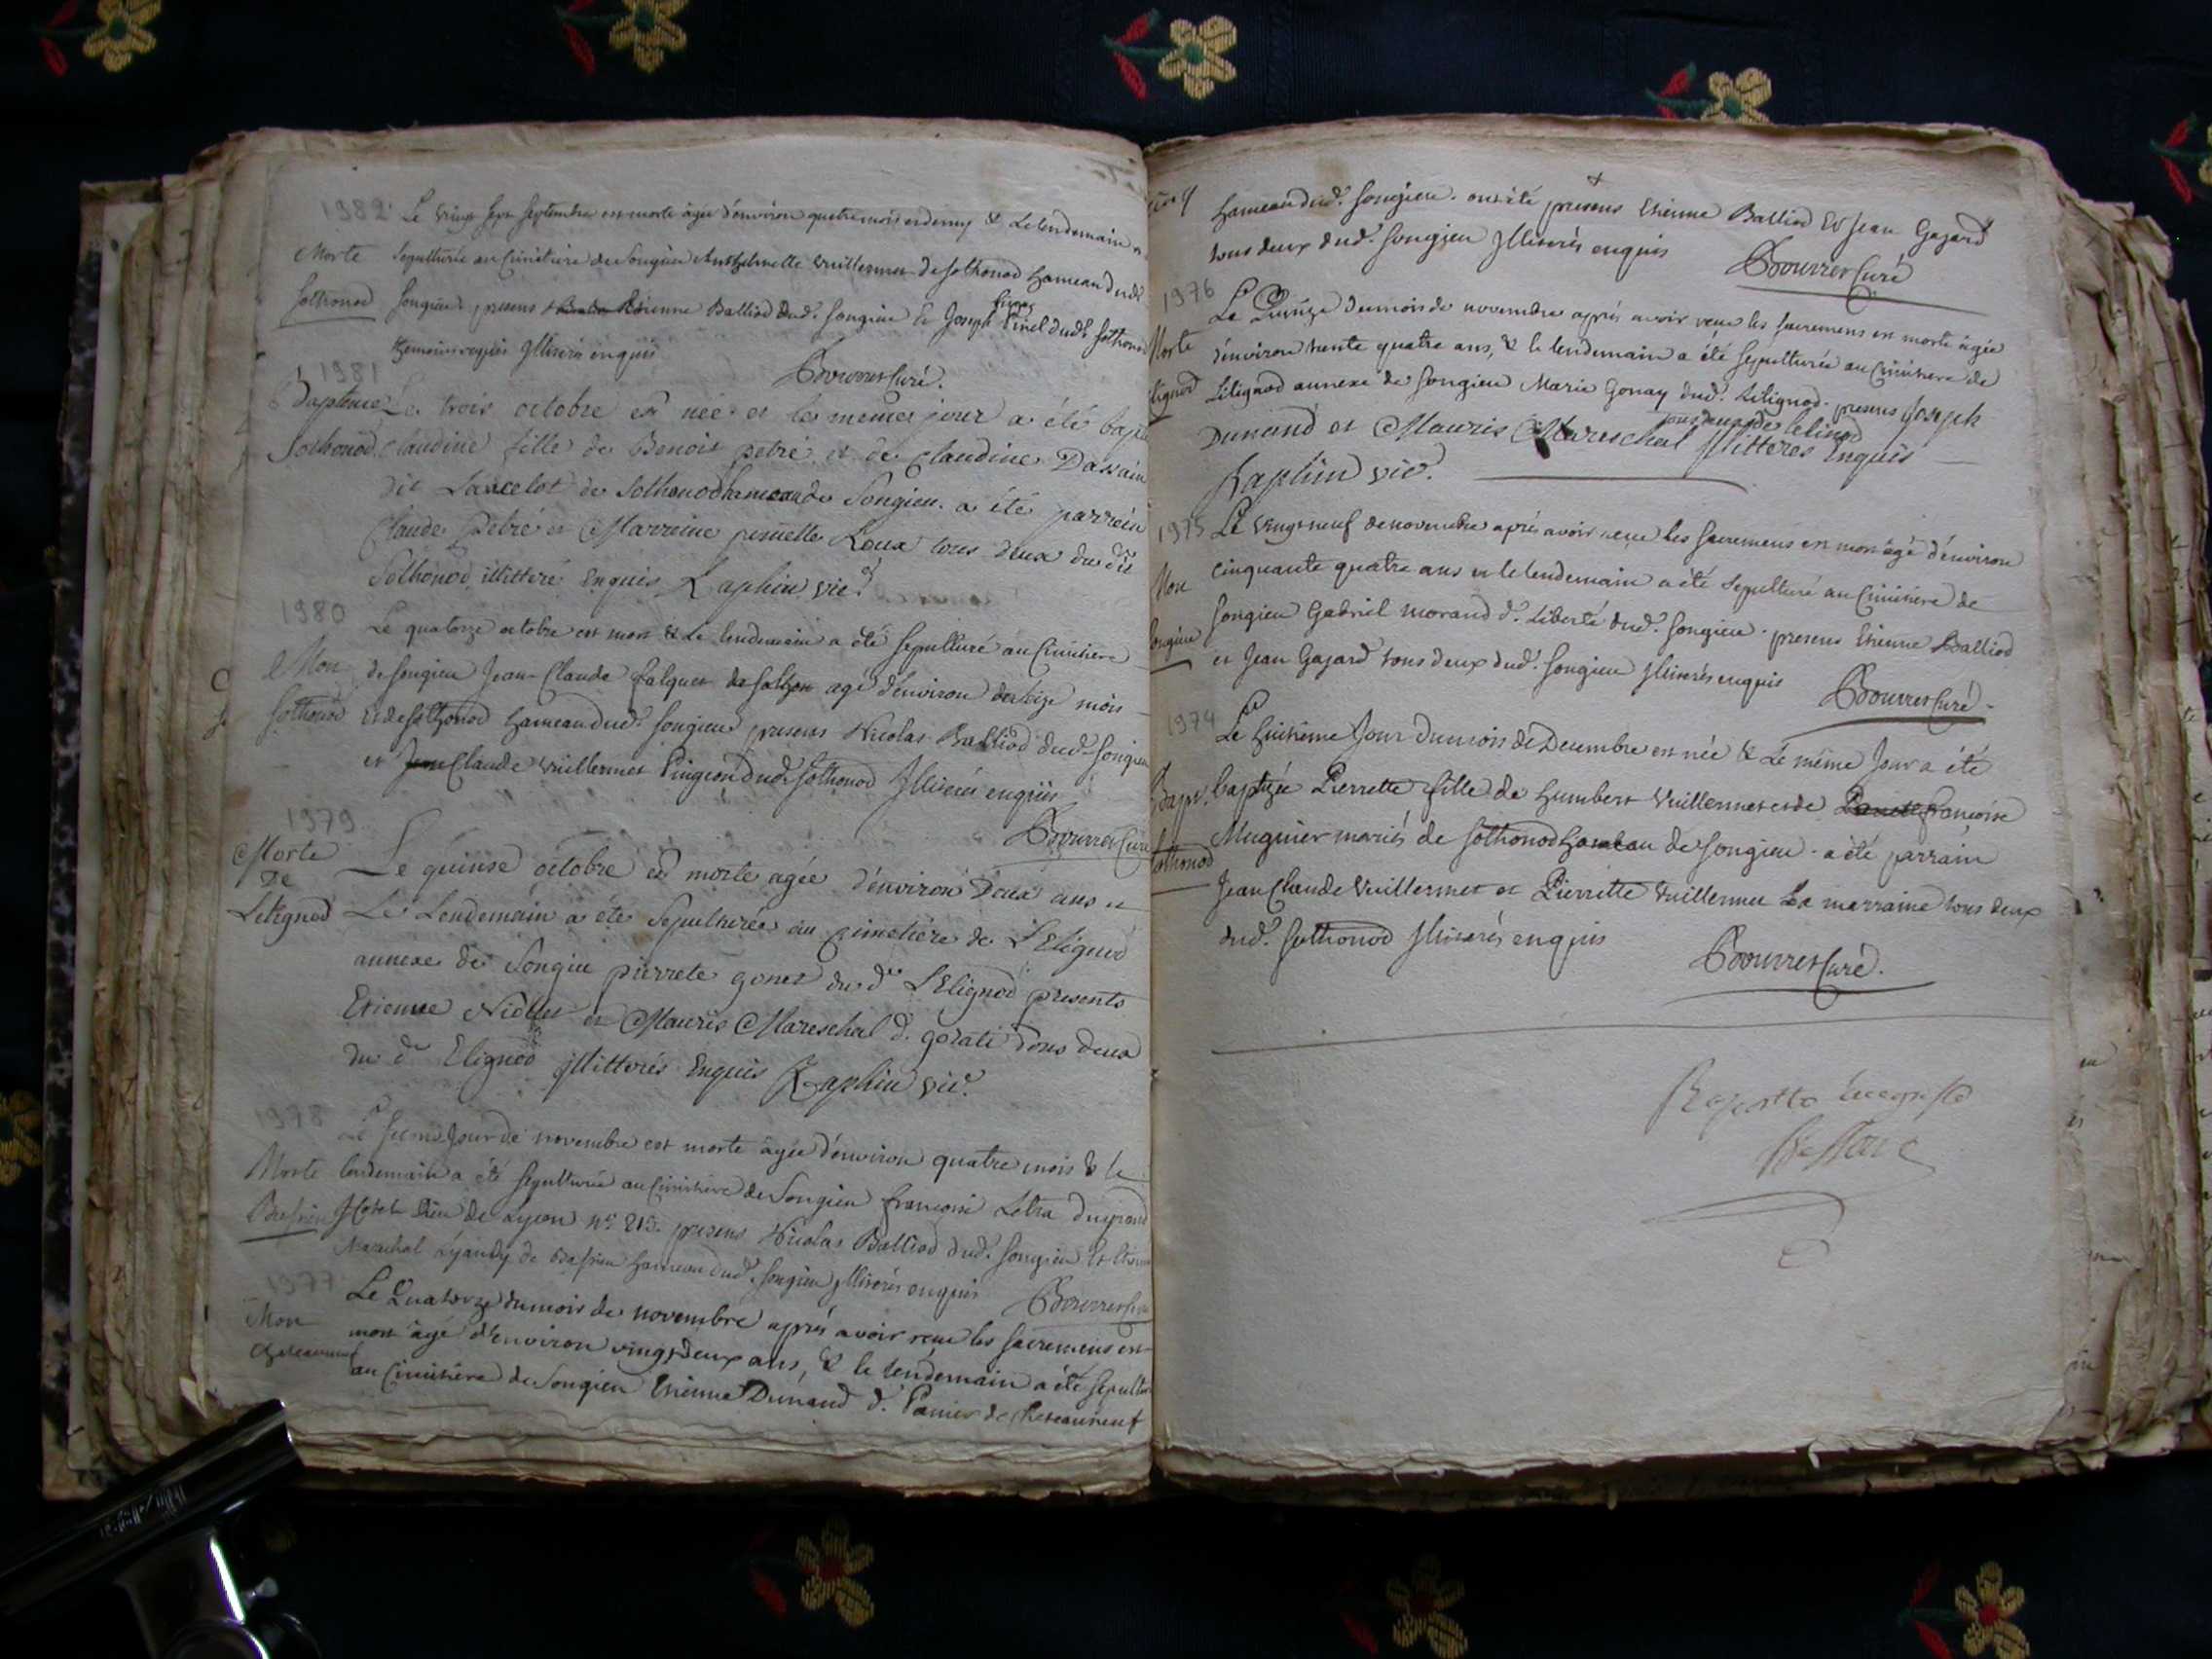 1982
Le vingt sept septembre est morte agée d'environ quatre mois et demy & Le lendemain a
Morte sepulturée au Cimitiere de Songieu Anthelmette Vuillermet de Sothonod hameau dud.
Sothonod Songieu. presens Etienne Balliod dud. Songieu & Joseph Pinel dud. Sothonod
temoins requis Illiterés enquis
Bourret Curé.
1981
Baptême Le trois octobre est née et le meme jour a été bapt
Sothonod claudine fille de Benoit petré et de claudine Dassain
dit Lancelot de Sothonod hameau de Songieu. a été parrein
Claude petré et Marreine pernette Roux tous deux du dit
Sothonod illitteré enquis Raphin vic.
1980
Le quatorze octobre est mort & Le lendemain a été sepulturé au Cimitiere
Mort de Songieu Jean-Claude falquet de Sothon agé d'environ de seize mois
Sothonod et de Sothonod hameau dud. Songieu presens Nicolas Balliod dud. Songieu
et Jean Claude Vuillermet Pingeon dud. Sothonod Illiterés enquis
Bourret Curé
1979
Morte
De
Lelignod
Le quinse octobre est morte agée d'environ Deux ans et
Le Lendemain a été sepulturée au cimetiere de L'Elignod
annexe de Songieu pierrete gonet du d. L'Elignod presents
Etienne Niollet et Mauris Mareschal d. gorati tous deux
du d. Elignod Illitterés Enquis Raphin vic.
1978
Le jour de novembre est morte agée d'environ quatre mois & le
Morte lendemain a été sepulturée au Cimitiere de Songieu françoise Letra du grand
hotel Dieu de Lyon n° 213. presens Nicolas Balliod dud. Songieu Et Etienne
Marechal de hameau dud. Songieu Illiterés enquis
Bourret Curé
1977
Le Quatorze du mois de novembre après avoir reçu les sacremens est
Mort mort agé d'environ vingt deux ans, & le lendemain a été sepulturé
Chateauneuf au Cimitiere de Songieu Etienne Dunand d. Panier de Chateauneuf
hameau dud. Songieu. ont été presens Etienne Balliod Et Jean Gajard
tous deux dud. Songieu Illiterés enquis
Bourret Curé
1976
Le Quinze du mois de novembre après avoir reçu les sacremens est morte agée
Morte d'environ trente quatre ans, & le lendemain a été sepulturée au Cimitiere de
Lelignod annexe de Songieu Marie Gonay dud. Lelignod. presens Joseph
tous deux de lelinod
Dunand et Mauris Mareschal Illitteres Enquis
Raphin vic.
1975
Le vingt neuf de novembre après avoir reçu les sacremens est mort agé d'environ
Mort cinquante quatre ans et le lendemain a été sepulturé au Cimitiere de
Songieu Songieu Gabriel morand d. Liberté dud. Songieu. presens Etienne Balliod
et Jean Gajard tous deux dud. Songieu Illiterés enquis
Bourret Curé
1974
Le huitième Jour du mois de Decembre est née & Le même Jour a été
Bapt. baptizée Pierrette fille de humbert Vuillermet et de françoise
Sothonod Muguier mariés de Sothonod hameau de Songieu. a été parrain
Jean Claude Vuillermet et Pierrette Vuillermet La marraine tous deux
dud. Sothonod Illiterés enquis
Bourret Curé.